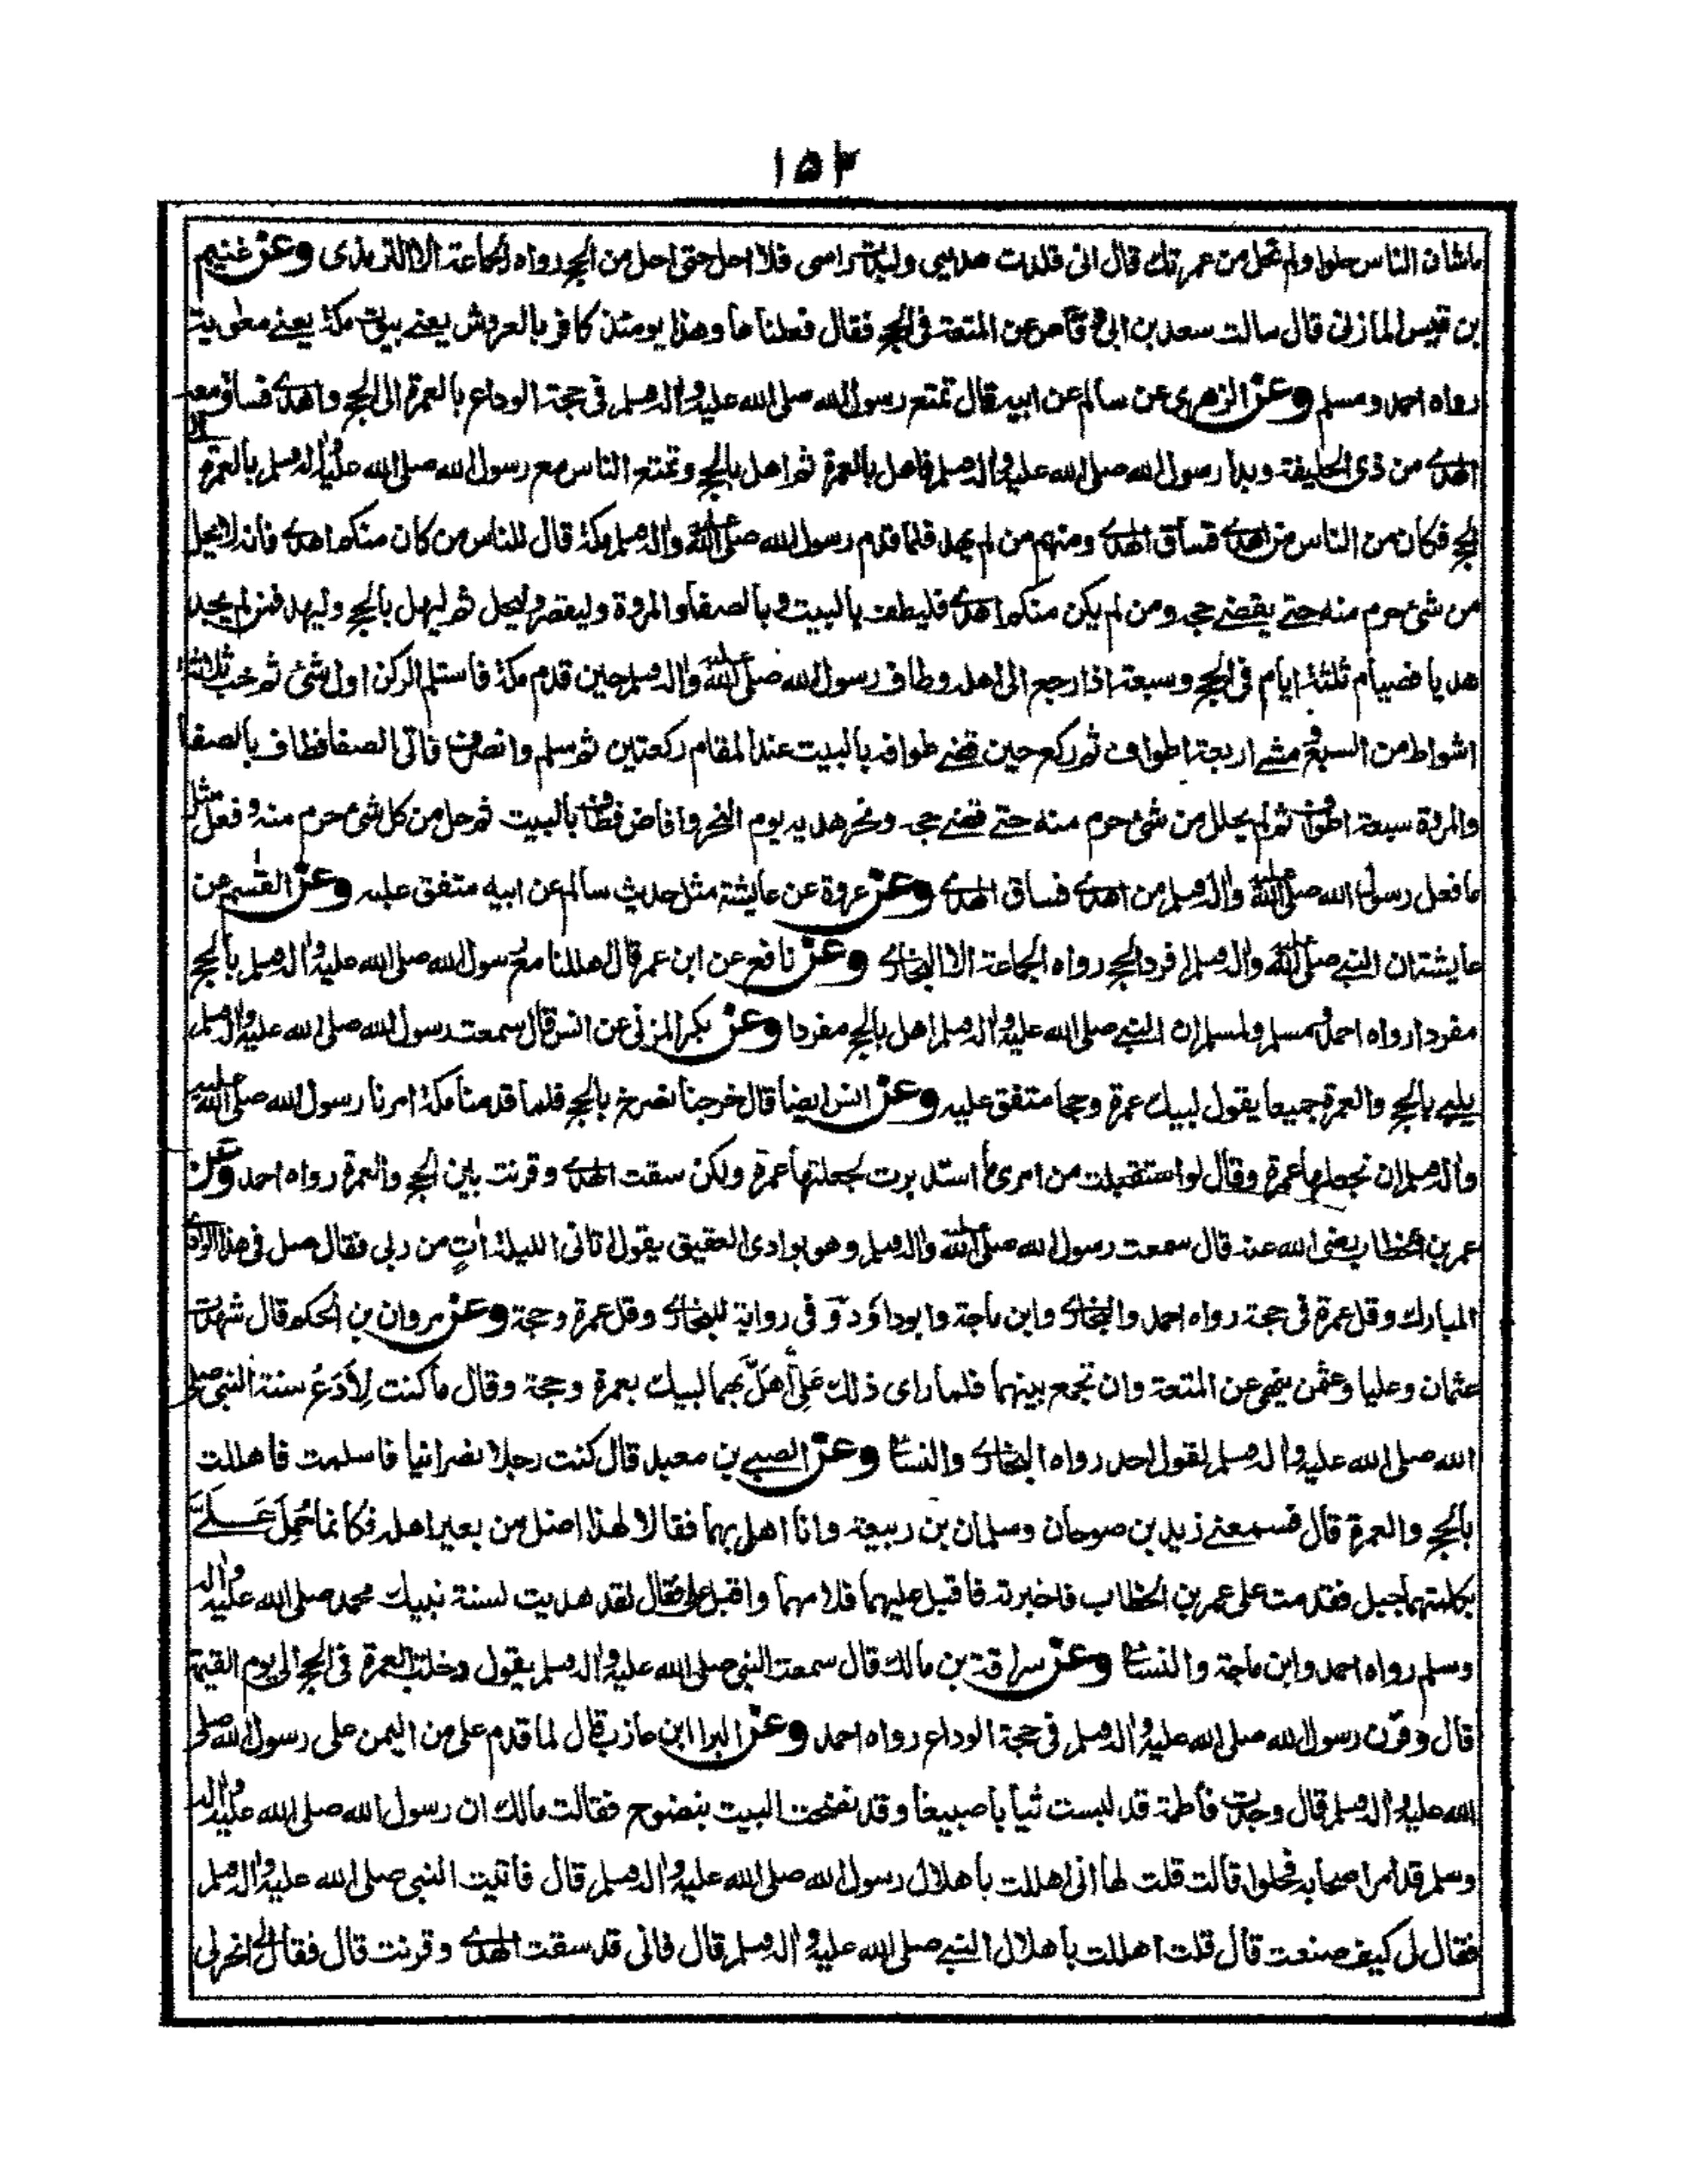 ١٥٣
ما شان الناس حلوا ولم تحل من عمرتك قال انى قلدت هديى ولبدت راسى فلا احل حتى احل من الحج رواه الجماعة الا الترمذى وعن غنيم
بن قيس المازنى قال سالت سعد بن ابى وقاص عن المتعة فى الحج فقال فعلناها وهذا يومئذ كافر بالعروش يعنے بيوت مكة يعنے معوية
رواه احمد ومسلم وعن الزهرى عن سالم عن ابيه قال تمتع رسول الله صلى الله عليه واله وسلم فى حجة الوداع بالعمرة الى الحج واهدے فساق معه
الهدے من ذى الحليفة وبدا رسول الله صلى الله عليه واله وسلم فاهل بالعمرة ثم اهل بالحج وتمتع الناس مع رسول الله صلى الله عليه واله وسلم بالعمرة الى
الحج فكان من الناس من اهدے فساق الهدے ومنهم من لم يهد فلما قدم رسول الله صلى الله عليه واله وسلم مكة قال للناس من كان منكم اهدے فانه لا يحل
من شئ حرم منه حتے يقضے حجه ومن لم يكن منكم اهدے فليطف بالبيت وبالصفا والمروة وليقصر وليحل ثم ليهل بالحج وليهد فمن لم يجد
هديا فصيام ثلثة ايام فى الحج وسبعة اذا رجع الى اهله وطاف رسول الله صلى الله عليه واله وسلم حين قدم مكة فاستلم الركن اول شئ ثم خب ثلاثة
اشواط من السبع ومشے اربعة اطواف ثم ركع حين قضے طوافه بالبيت عند المقام ركعتين ثم سلم وانصرف فاتى الصفا فطاف بالصفا
والمروة سبعة اطواف ثم لم يحلل من شئ حرم منه حتے قضے حجه ونحر هديه يوم النحر وافاض فطاف بالبيت ثم حل من كل شئ حرم منه وفعل مثل
ما فعل رسول الله صلى الله عليه واله وسلم من اهدے فساق الهدے وعن عروة عن عايشة مثل حديث سالم عن ابيه متفق عليه وعن القسم عن
عايشة ان النبے صلى الله عليه واله وسلم افرد الحج رواه الجماعة الا البخارے وعن نافع عن ابن عمر قال اهللنا مع رسول الله صلى الله عليه واله وسلم بالحج
مفردا رواه احمد ومسلم ولمسلم ان النبے صلى الله عليه واله وسلم اهل بالحج مفردا وعن بكر المزنى عن انس قال سمعت رسول الله صلى الله عليه واله وسلم
يلبے بالحج والعمرة جميعا يقول لبيك عمرة وحجا متفق عليه وعن انس ايضا قال خرجنا نصرخ بالحج فلما قدمنا مكة امرنا رسول الله صلى الله عليه
واله وسلم ان نجعلها عمرة وقال لو استقبلت من امرى ما استدبرت لجعلتها عمرة ولكن سقت الهدے وقرنت بين الحج والعمرة رواه احمد وعن
عمر بن الخطاب رضى الله عنه قال سمعت رسول الله صلى الله عليه واله وسلم وهو بوادى العقيق يقول اتانى الليلة اٰتٍ من ربى فقال صل فى هذا الوادے
المبارك وقل عمرة فى حجة رواه احمد والبخارے وابن ماجة وابو داؤد وفى رواية للبخارے وقل عمرة وحجة وعن مروان بن الحكم قال شهدت
عثمان وعليا وعثمن ينهى عن المتعة وان تجمع بينهما فلما راى ذلك عَلِىٌّ اَهَلَّ بهما لبيك بعمرة وحجة وقال ما كنت لِاَدَعُ سنة النبى صلى
الله صلى الله عليه واله وسلم لقول احد رواه البخارے والنسائے وعن الصبے بن معبد قال كنت رجلا نصرانيا فاسلمت فاهللت
بالحج والعمرة قال فسمعنے زيد بن صوحان وسلمان بن ربيعة وانا اهل بهما فقالا لهذا اضل من بعير اهله فكانما حُمِلَ عَلَےَّ
بكلمتهما جبل فقدمت على عمر بن الخطاب فاخبرته فاقبل عليهما فلامهما واقبل على فقال لقد هديت لسنة نبيك محمد صلى الله عليه واله
وسلم رواه احمد وابن ماجة والنسائے وعن سراقة بن مالك قال سمعت النبى صلى الله عليه واله وسلم يقول دخلت العمرة فى الحج الى يوم القيمة
قال وقرن رسول الله صلى الله عليه واله وسلم فى حجة الوداع رواه احمد وعن البرا ابن عازب قال لما قدم على من اليمن على رسول الله صلى
الله عليه واله وسلم قال وجدت فاطمة قد لبست ثيابا صبيغا وقد نضحت البيت بنضوح فقالت مالك ان رسول الله صلى الله عليه واله
وسلم قد امر اصحابه فحلوا قالت قلت لها انى اهللت باهلال رسول الله صلى الله عليه واله وسلم قال فاتيت النبى صلى الله عليه واله وسلم
فقال لى كيف صنعت قال قلت اهللت باهلال النبے صلى الله عليه واله وسلم قال فانى قد سقت الهدے وقرنت قال فقال لى انحر لى